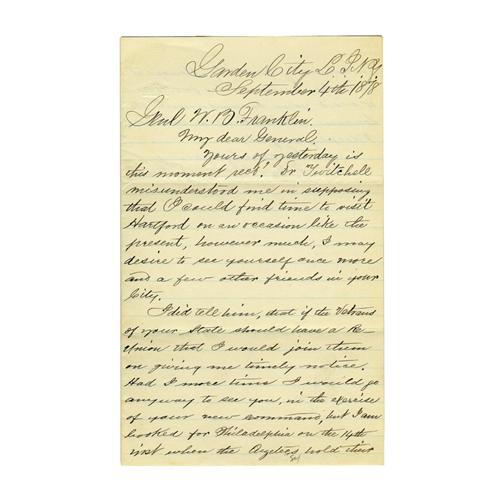 Garden City L. I. N.Y.
September 4th 1878
Genl W. B. Franklin.
My dear General.
Yours of yesterday is
this moment recd. Dr Twitchell
misunderstood me in supposing
that I could find time to visit
Hartford on an occasion like the
present, however much, I may
desire to see yourself once more
and a few other friends in your
City.
I did tell him, that if the Veterans
of your State should have a Re-
Union that I would join them
on giving me timely notice.
Had I more time I would go
anyway to see you, in the exercise
of your new command, but I am
booked for Philadelphia on the 14th
inst when the hold their